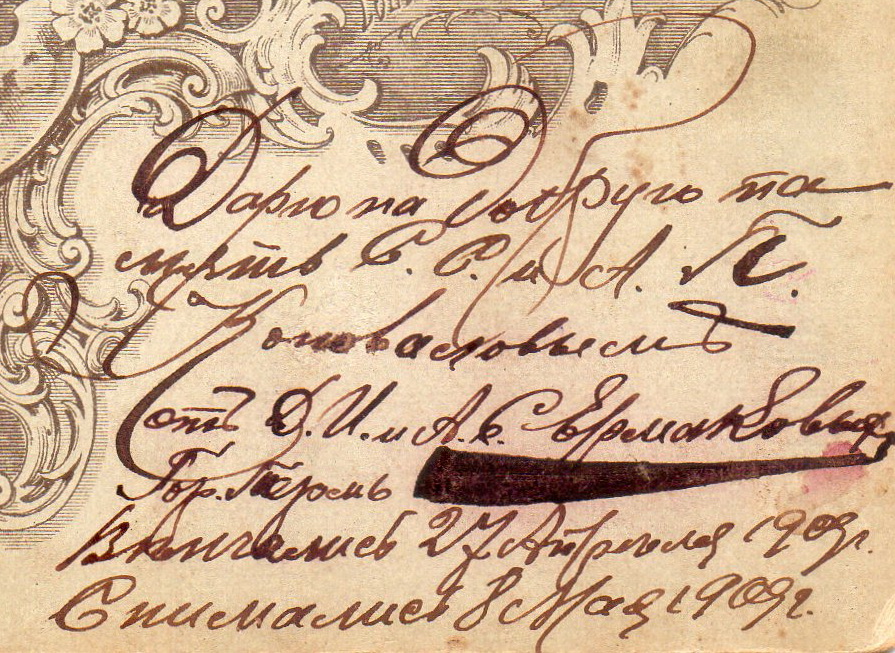 Дарю на добрую па
мять С. С. и А. П.
Коноваловымъ
отъ Д. И. и А. С. Ермаковых
Гор. Пермь
Венчались 27 Апреля 1909 г.
Снимались 8 Мая 1909 г.